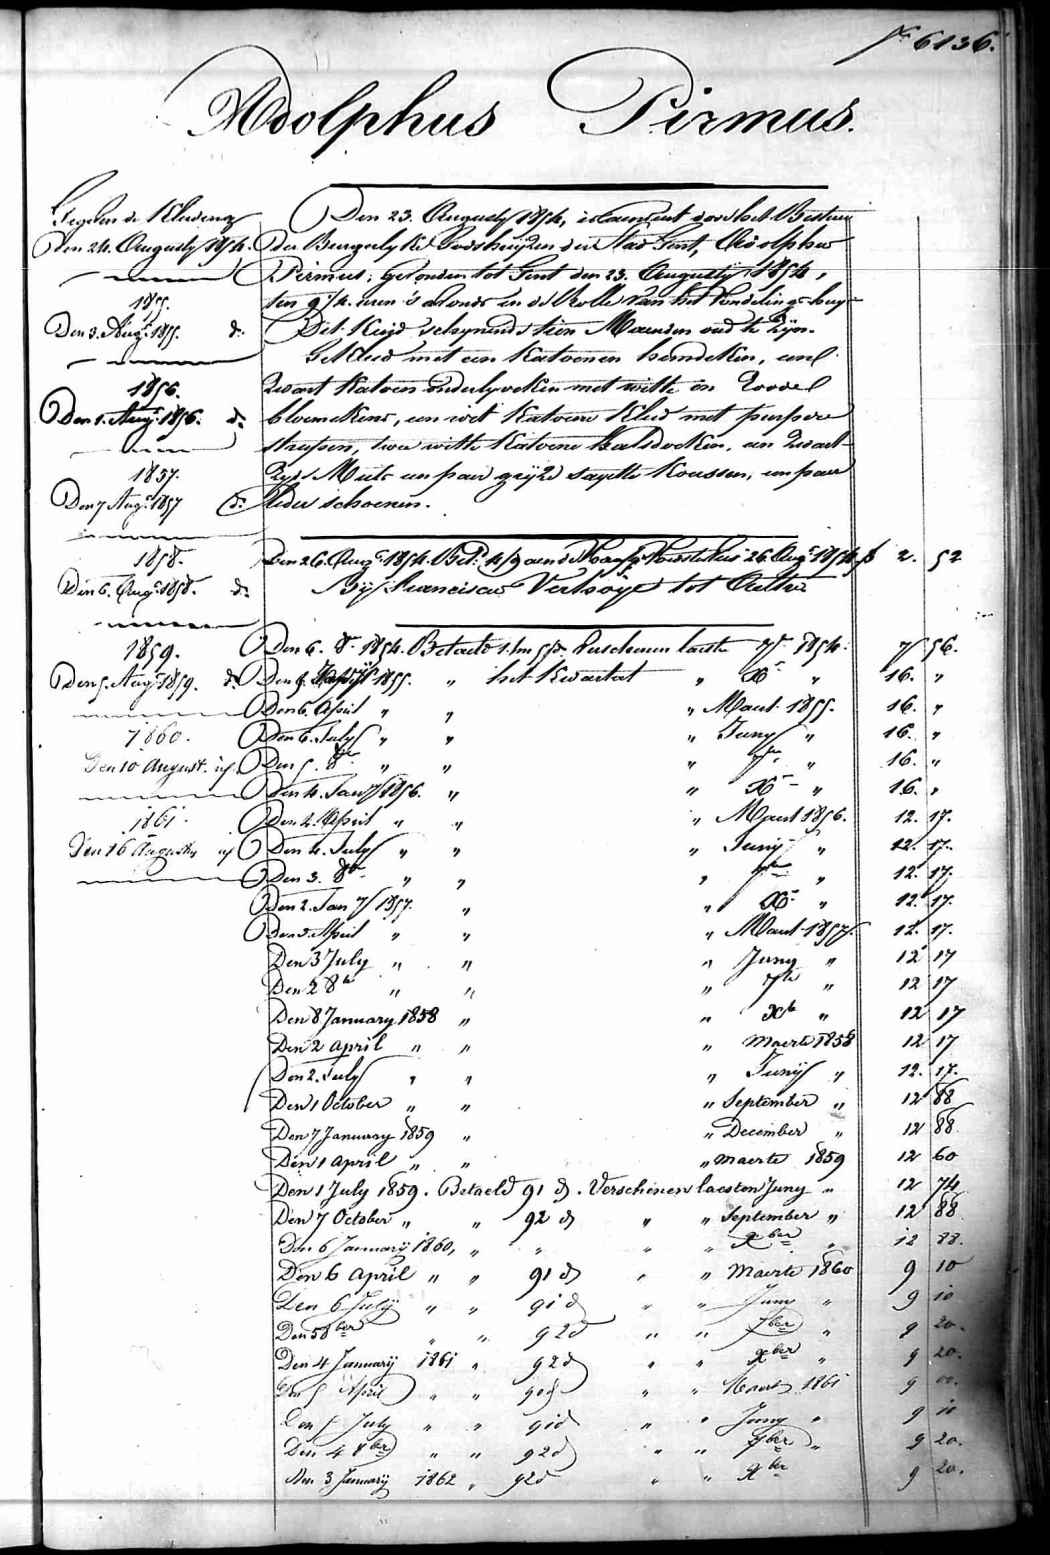 No 6136.
Adolphus Pirmus.
Gegeven de Kleedeng
Den 24. Augusty 1854.
1855.
Den 3. Aug. 1855. do
1856.
Den 1. Aug. 1856. do
1857.
Den 7 Aug. 1857 do
1858.
Den 6. Aug. 1858. do
1859.
Den 5. Aug. 1859. do
1860.
Den 10 August.
1861.
Den 16 Augusty
Den 23. Augusty 1854, door het Bestuur
der Burgerlyke Godshuyzen der Stad Gent, Adolphus
Pirmus; gevonden tot Gent den 23. Augusty 1854,
ten 9 1/4 uren 's avonds in de Rolle van het Vondelingshuys
Dit Kind schynende tien Maenden oud te zyn.
Gekleed met een Katoenen hemdeken, een
zwart Katoen onderlyveken met witte en roode
bloemekens, een wit Katoene Kleed met purpere
streepen, twee witte Katoene halsdoeken, een zwart
zyde Muts een paer gryze sayette Koussen, een paer
leder schoenen.
Den 26. Aug. 1854. 26. Aug. 1854 f 2. 52
By Franciscus Verhoye tot Aeltre
Den 6. 8r 1854. Betaeld verschenen laeste 7r 1854. 7 56.
Den 5. 1855. " het Kwartaal " Xr " 16. "
Den 6. April " " " Maert 1855. 16. "
Den 6. July " " " Juny " 16. "
Den 5. 8r " " " 7r " 16. "
Den 4. Jany 1856. " " Xr " 16. "
Den 2. April " " " Maert 1856. 12. 17.
Den 4. July " " " Juny " 12. 17.
Den 3. 8r " " " 7r " 12. 17.
Den 2. Jany 1857. " " Xr " 12. 17.
Den 3. April " " " Maert 1857. 12. 17.
Den 3 July " " " Juny " 12 17
Den 2 8br " " " 7br " 12 17
Den 8 January 1858 " " Xbr " 12 17
Den 2 April " " " Maerte 1858 12 17
Den 2. July " " " Juny " 12. 17.
Den 1 October " " " September " 12 88
Den 7 January 1859 " " December " 12 88
Den 1 April " " " Maerte 1859 12 60
Den 1 July 1859. Betaeld 91 d. Verschenen laesten Juny " 12 74
Den 7 October " " 92 d " " September " 12 88
Den 6 January 1860, " " " " Xber " 12 88.
Den 6 April " " 91 d " " Maerte 1860 9 10
Den 6 July " " 91 d " " Juny " 9 10
Den 5 8ber " " 92 d " " 7ber " 9 20.
Den 4 January 1861 " 92 d " " Xber " 9 20.
Den 5 April " " 90 d " " Maert 1861 9 00.
Den 5 July " " 91 d " " Juny " 9 10
Den 4 8ber " " 92 d " " 7ber " 9 20.
Den 3 January 1862 " 92 d " " Xber 9 20.